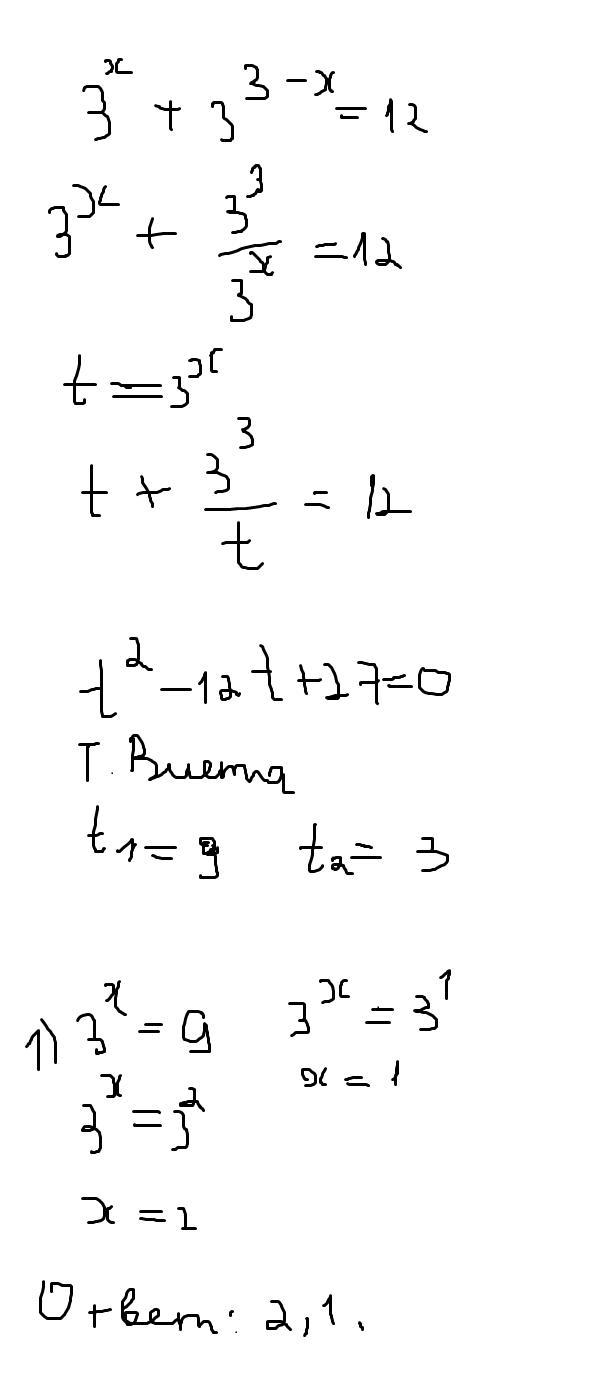 3^x + 3^{3-x} = 12
3^x + 3^3/3^x = 12
t = 3^x
t + 3^3/t = 12
t^2 - 12t + 27 = 0
Т. Виета
t_1 = 9 t_2 = 3
1) 3^x = 9 3^x = 3^1
3^x = 3^2 x = 1
x = 2
Ответ: 2, 1.